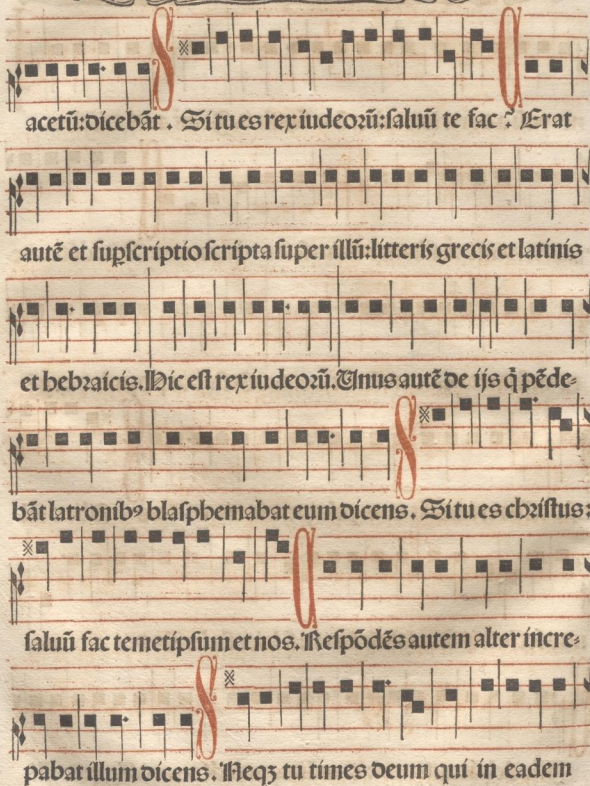 acetū:dicebāt . Si tu es rex iudeorū:saluū te fac ? Erat
autē et suꝑscriptio scripta super illū:litteris grecis et latinis
et hebraicis. Hic est rex iudeorū. Unus autē de ijs q̄ pēde-
bāt latronibꝰ blasphemabat eum dicens. Si tu es christus:
saluū fac temetipsum et nos. Respōdēs autem alter incre-
pabat illum dicens. Neqꝫ tu times deum qui in eadem